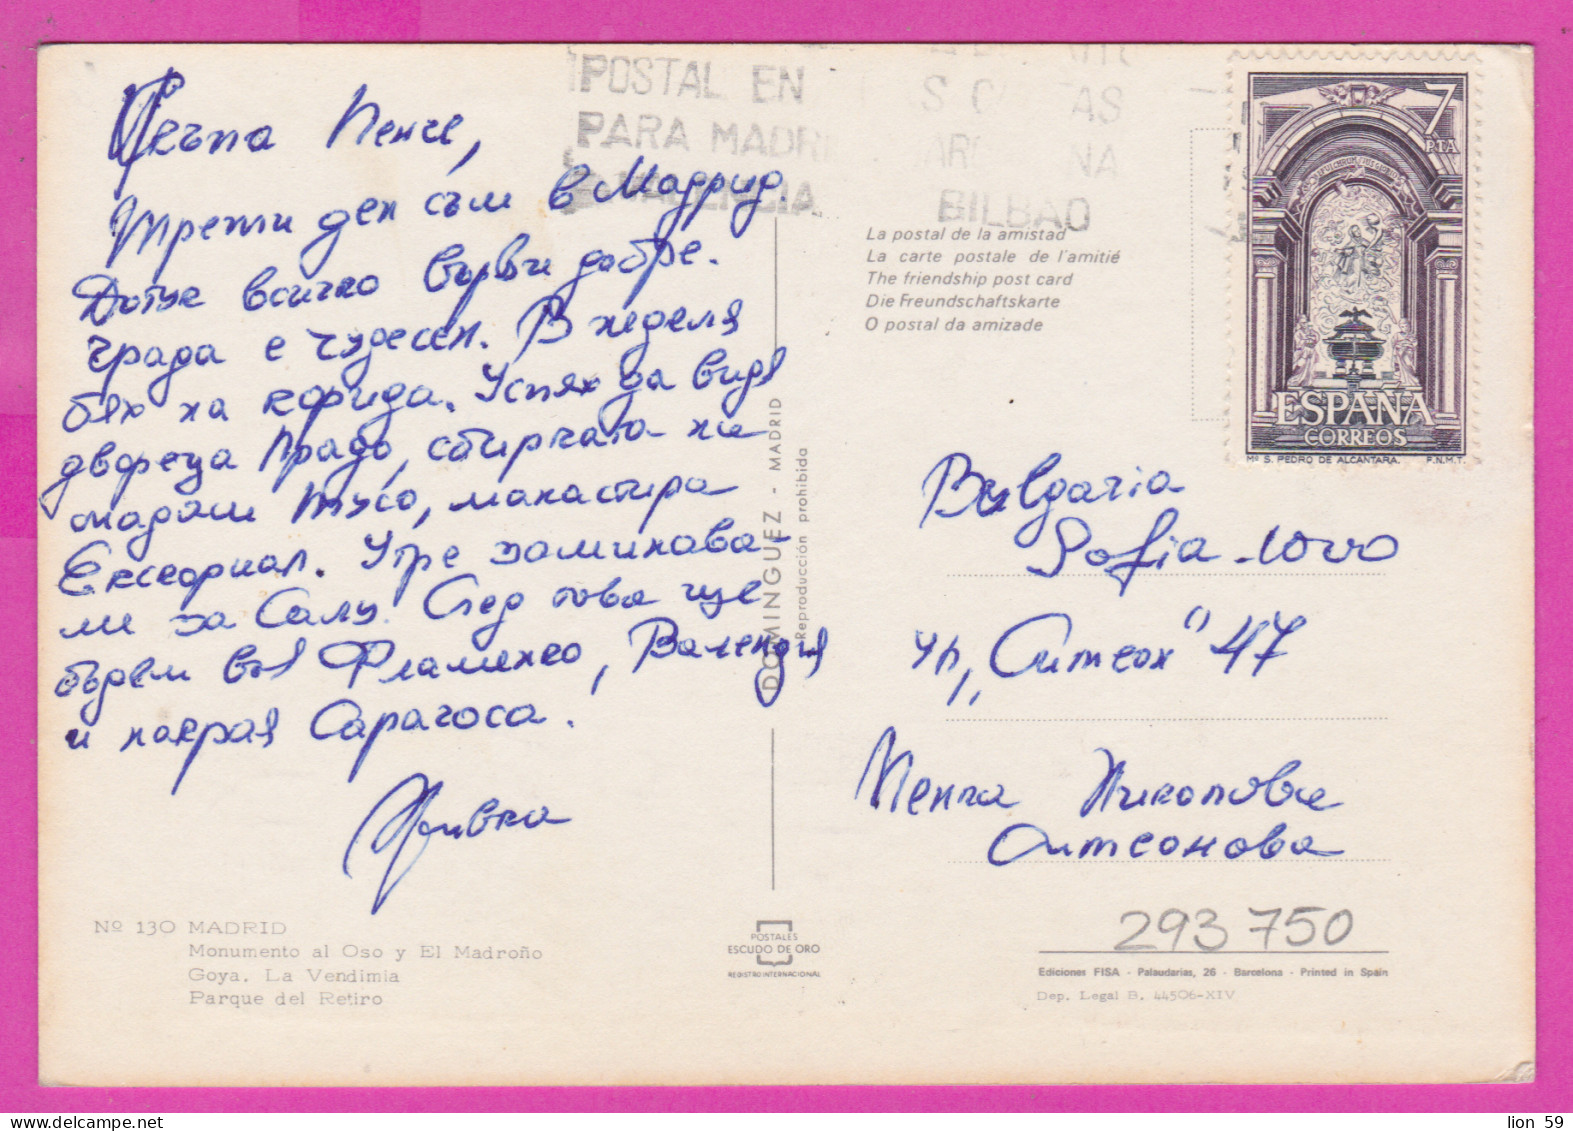 Скъпа Пенче,
Трети ден съм в Мадрид.
Дотук всичко върви добре.
Града е чудесен. В неделя
бях на корида. Успях да видя
двореца Прадо, сбирката на
мадам Тусо, манастира
Ексеориал. Утре заминава-
ме за Салу. След това ще
бъдем във Фламенко, Валенция
и накрая Сарагоса.
Nº 130 MADRID
Monumento al Oso y El Madroño
Goya. La Vendimia
Parque del Retiro
DOMINGUEZ - MADRID
Reproducción prohibida
POSTALES
ESCUDO DE ORO
REGISTRO INTERNACIONAL
POSTAL EN
PARA MADRI
VALENCIA
BILBAO
La postal de la amistad
La carte postale de l'amitié
The friendship post card
Die Freundschaftskarte
O postal da amizade
7
PTA
ESPAÑA
CORREOS
Mº S. PEDRO DE ALCANTARA. F.N.M.T.
Bulgaria
Sofia - 1000
ул. "Симеон" 47
Пенка Николова
Симеонова
293 750
Ediciones FISA - Palaudarias, 26 - Barcelona - Printed in Spain
Dep. Legal B. 44506-XIV
lion 59